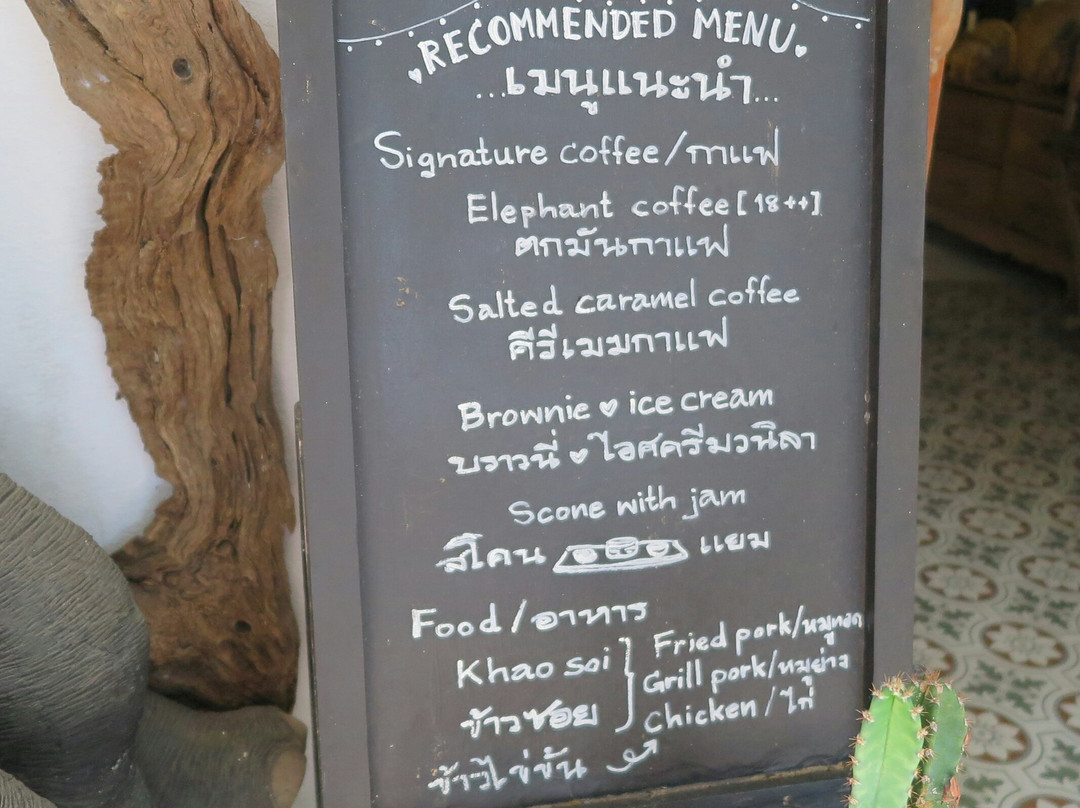 RECOMMENDED MENU
...เมนูแนะนำ...
Signature coffee/กาแฟ
Elephant coffee [18++]
ตกมันกาแฟ
Salted caramel coffee
คีรีเมฆกาแฟ
Brownie ♥ ice cream
บราวนี่ ♥ ไอศครีมวนิลา
Scone with jam
สโคน แยม
Food/อาหาร
Khao soi } Fried pork/หมูทอด
Grill pork/หมูย่าง
ข้าวซอย Chicken/ไก่
ข้าวไข่ข้น